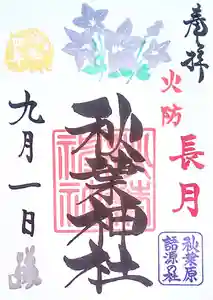 奉拝
火防
長月
秋葉神社
九月一日
秋葉原
諸源之社